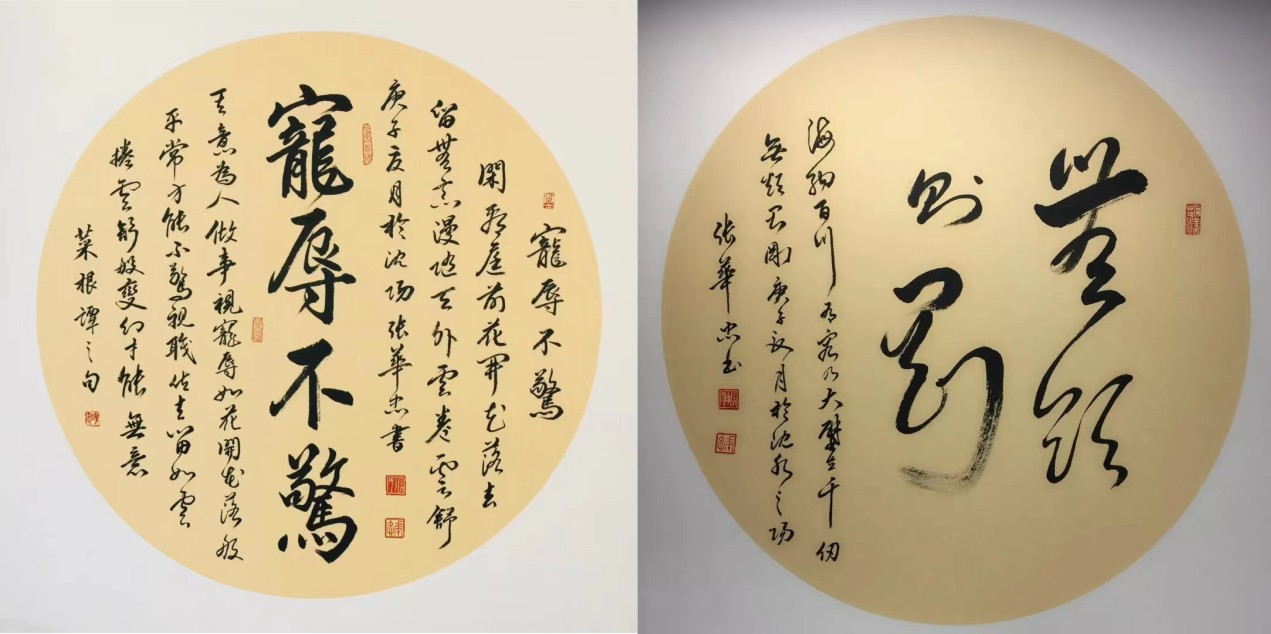 寵辱不驚
閑看庭前花開花落去
留無意漫隨天外雲卷雲舒
庚子夏月於沈陽張華忠書
寵辱不驚
其意為人做事視寵辱如花開花落般
平常方能不驚視職位去留如雲
捲雲舒般變幻才能無意
菜根譚之句
無欲
則剛
海納百川有容乃大壁立千仞
無欲則剛庚子夏月於沈水之陽
張華忠書